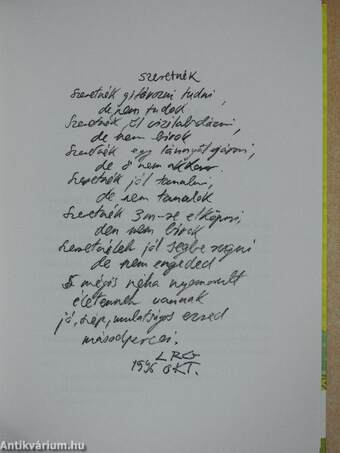 szeretnék
Szeretnék gitározni tudni,
de nem tudok
Szeretnék jól vízilabdázni,
de nem birok
Szeretnék egy lánnyal járni,
de ő nem akar
Szeretnék jól tanulni,
de nem tanulok
Szeretnék 3 m-re elköpni,
de nem birok
Szeretnélek jól segbe rugni
de nem engeded
S mégis néha nyomorult
életemnek vannak
jó, szép, mulatságos ezred
másodpercei.
LRG
OKT.
Antikvárium.hu